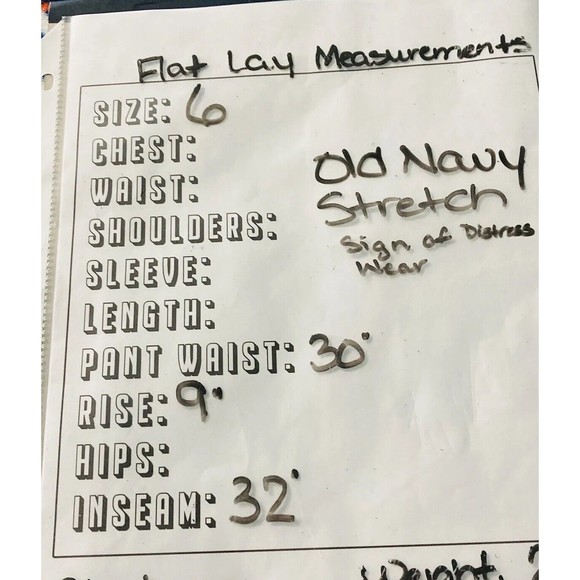 Flat Lay Measurements
SIZE: 6
CHEST:
WAIST:
SHOULDERS:
SLEEVE:
LENGTH:
PANT WAIST: 30"
RISE: 9"
HIPS:
INSEAM: 32"
Old Navy
Stretch
Sign of Distress
Wear
Weight